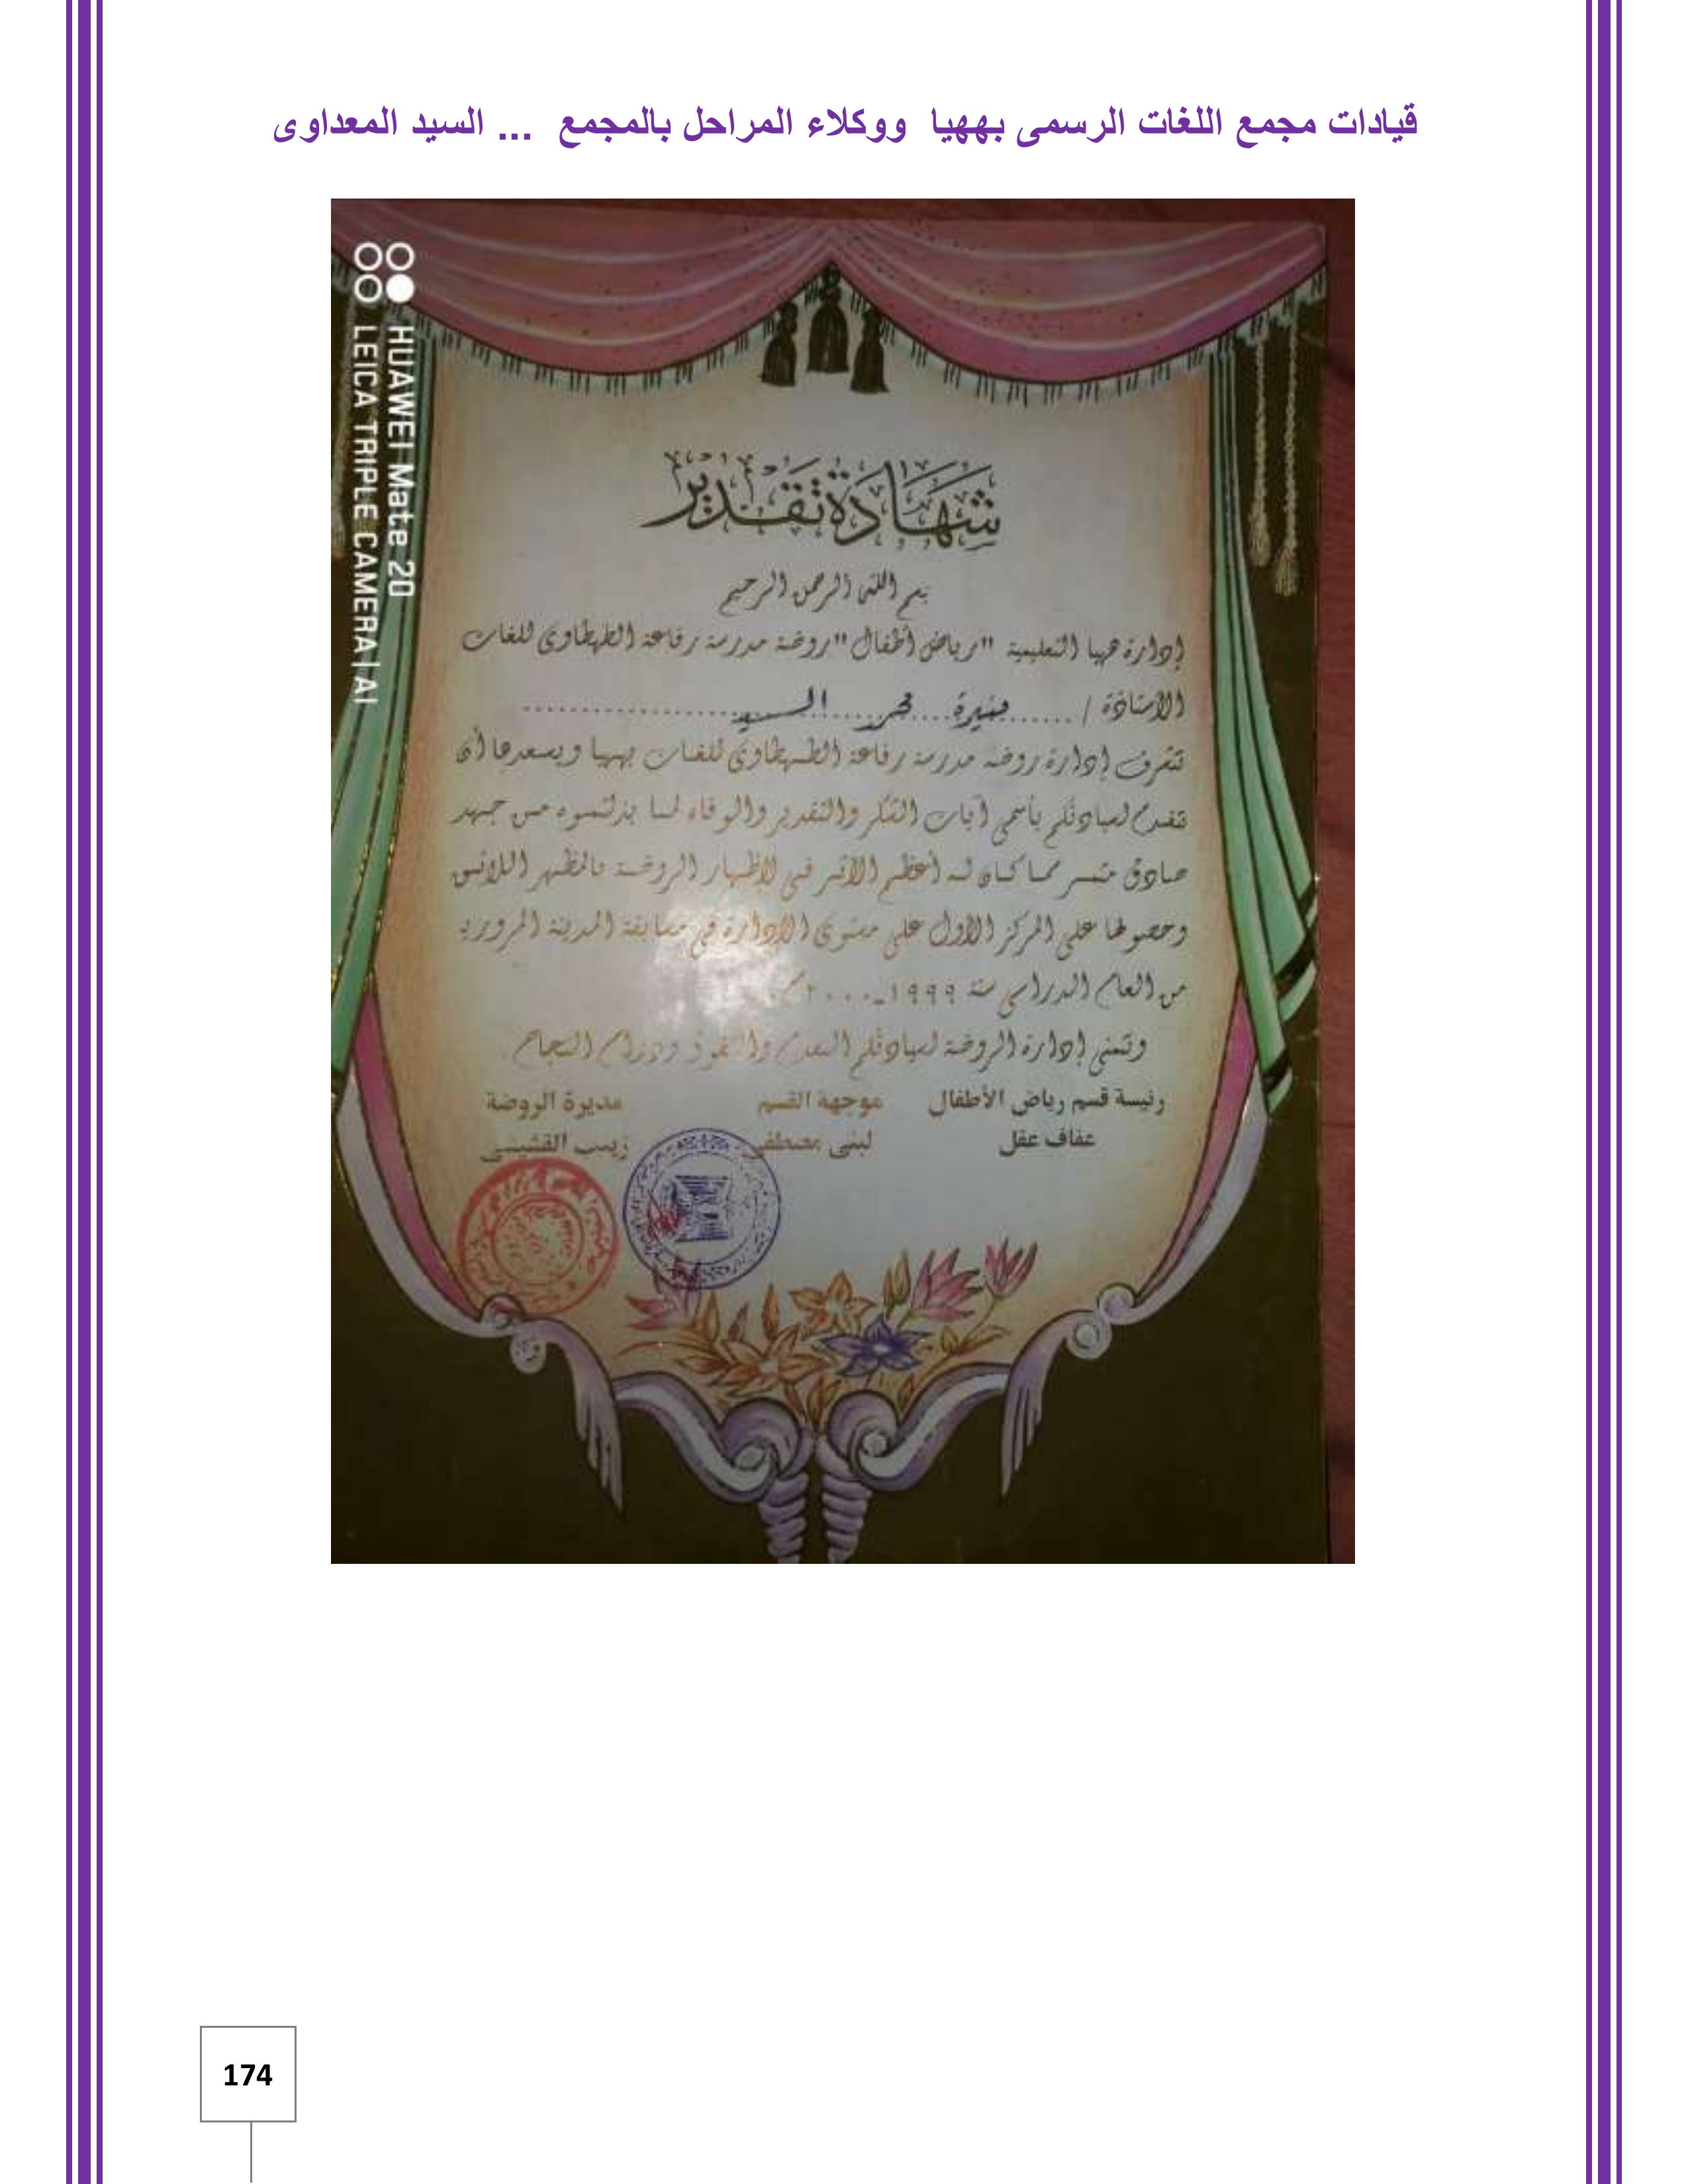 قيادات مجمع اللغات الرسمى بههيا ووكلاء المراحل بالمجمع ... السيد المعداوى
HUAWEI Mate 20
LEICA TRIPLE CAMERA | AI
شهادة تقدير
بسم الله الرحمن الرحيم
إدارة ههيا التعليمية "رياض أطفال" روضة مدرسة رفاعة الطهطاوى للغات
الأستاذة / ...... منيرة .... محمد ..... السيد ..................
تتشرف إدارة روضة مدرسة رفاعة الطهطاوى للغات بههيا ويسعدها أن
تتقدم لسيادتكم بأسمى آيات الشكر والتقدير والوفاء لما بذلتموه من جهد
صادق مثمر مما كان له أعظم الأثر فى لإظهار الروضة بالمظهر اللائق
وحصولها على المركز الأول على مستوى الإدارة فى مسابقة المدينة المرورية
من العام الدراسى سنة ١٩٩٩ـ٢٠٠٠م.
وتتمنى إدارة الروضة لسيادتكم التقدم والتفوق ودوام النجاح.
رئيسة قسم رياض الأطفال موجهة القسم مديرة الروضة
عفاف عقل لبنى مصطفى زينب القشيشى
174